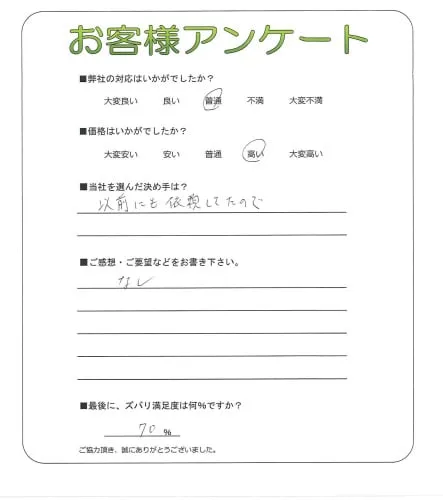 お客様アンケート
■弊社の対応はいかがでしたか？
大変良い 良い 普通 不満 大変不満
■価格はいかがでしたか？
大変安い 安い 普通 高い 大変高い
■当社を選んだ決め手は？
以前にも依頼してたので
■ご感想・ご要望などをお書き下さい。
なし
■最後に、ズバリ満足度は何％ですか？
70 ％
ご協力頂き、誠にありがとうございました。